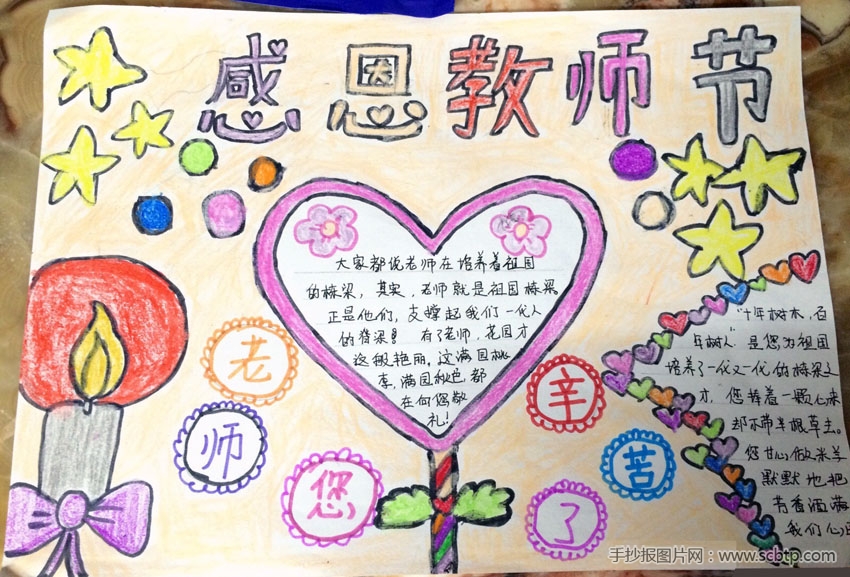 感恩教师节
大家都说老师在培养着祖国
的栋梁，其实，老师就是祖国栋梁。
正是他们，支撑起我们一代人
的脊梁！有了老师，花园才
这般艳丽，这满园桃
李，满园秋色都
在向您敬
礼！
老
师
您
辛
苦
了
"十年树木，百
年树人"是您为祖国
培养了一代又一代的栋梁之
才，您捧着一颗心来
却不带半根草去。
您甘心做米羊
默默地把
芳香洒满
我们心田
手抄报图片网：www.scbtp.com